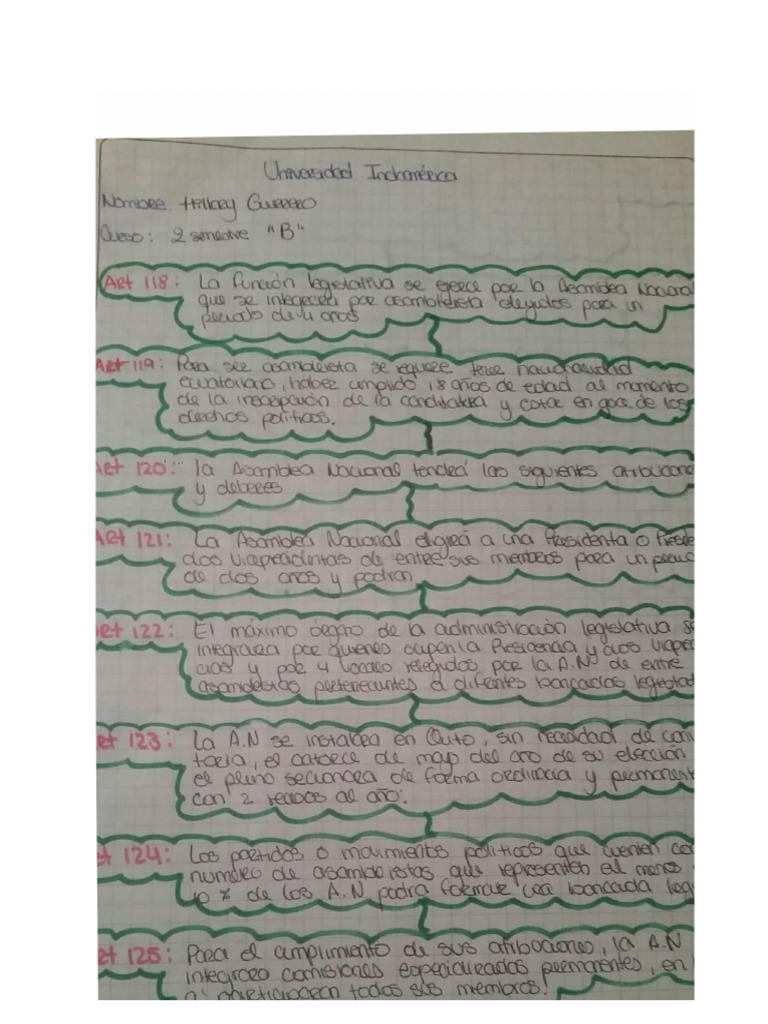 Universidad Indoamérica
Nombre Hillary Guerrero
Curso: 2 semestre "B"
Art 118: La función legislativa se ejerce por la Asamblea Nacional
que se integrara por asambleista elegidos para un
periodo de 4 años
Art 119: Para ser asambleista se requiere tener nacionalidad
ecuatoriano, haber cumplido 18 años de edad al momento
de la inscripción de la candidatura y estar en goce de los
derechos políticos.
Art 120: la Asamblea Nacional tendrá las siguientes atribucione
y deberes
Art 121: La Asamblea Nacional elegirá a una Presidenta o Preside
dos Vicepresidentas de entre sus miembros para un periodo
de dos años y podran
Art 122: El máximo órgano de la administración legislativa se
integrara por quienes ocupen la Presidencia y dos Vicepre
cias y por 4 relegidos por la A.N de entre
asambleistas pertenecientes a difentes bancadas legislat
Art 123: La A.N se instalara en Quito, sin necesidad de conv
toria, el catorce de mayo del año de su elección
el pleno secionara de forma ordinaria y permanent
con 2 recesos al año.
Art 124: Los partidos o movimientos politicos que cuenten con
numero de asambleistas que representen el menos
10 % de los A.N podra formar una bancada leg
Art 125: Para el cumplimiento de sus atribuciones, la A.N
integrara comisiones especializados permanentes, en
participaran todos sus miembros.